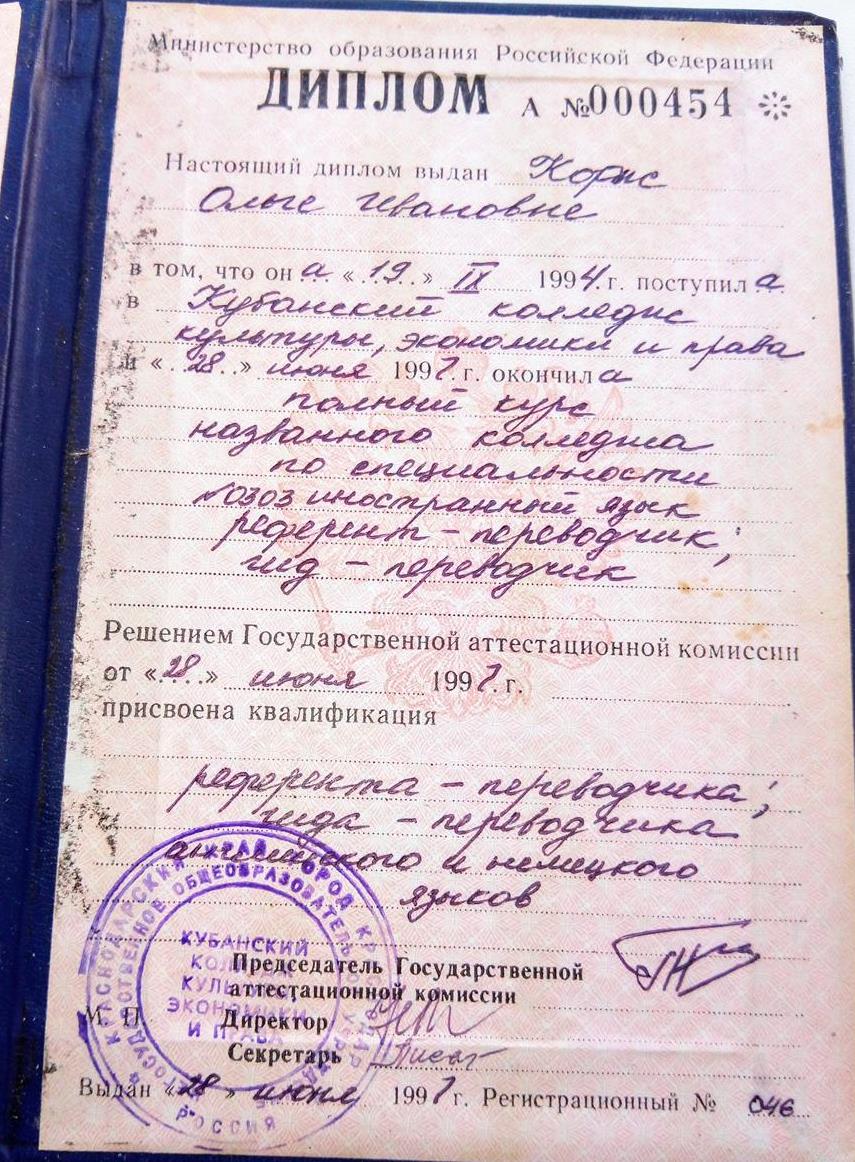 Министерство образования Российской Федерации
ДИПЛОМ А №000454
Настоящий диплом выдан
Ольге Ивановне
в том, что она «19» IX 1994 г. поступила
в Кубанский колледж
культуры, экономики и права
и «28» июня 1997 г. окончила
полный курс
названного колледжа
по специальности
0303 иностранный язык
референт - переводчик;
гид - переводчик
Решением Государственной аттестационной комиссии
от «28» июня 1997 г.
присвоена квалификация
референта - переводчика;
гида - переводчика
английского и немецкого
языков
Председатель Государственной
аттестационной комиссии
М П Директор
Секретарь
Выдан «28» июня 1997 г. Регистрационный № 046
КРАСНОДАРСКИЙ КРАЙ ГОРОД КРАСНОДАР
ГОСУДАРСТВЕННОЕ ОБЩЕОБРАЗОВАТЕЛЬНОЕ
КУБАНСКИЙ
КОЛЛЕДЖ
КУЛЬТУРЫ,
ЭКОНОМИКИ
И ПРАВА
РОССИЯ